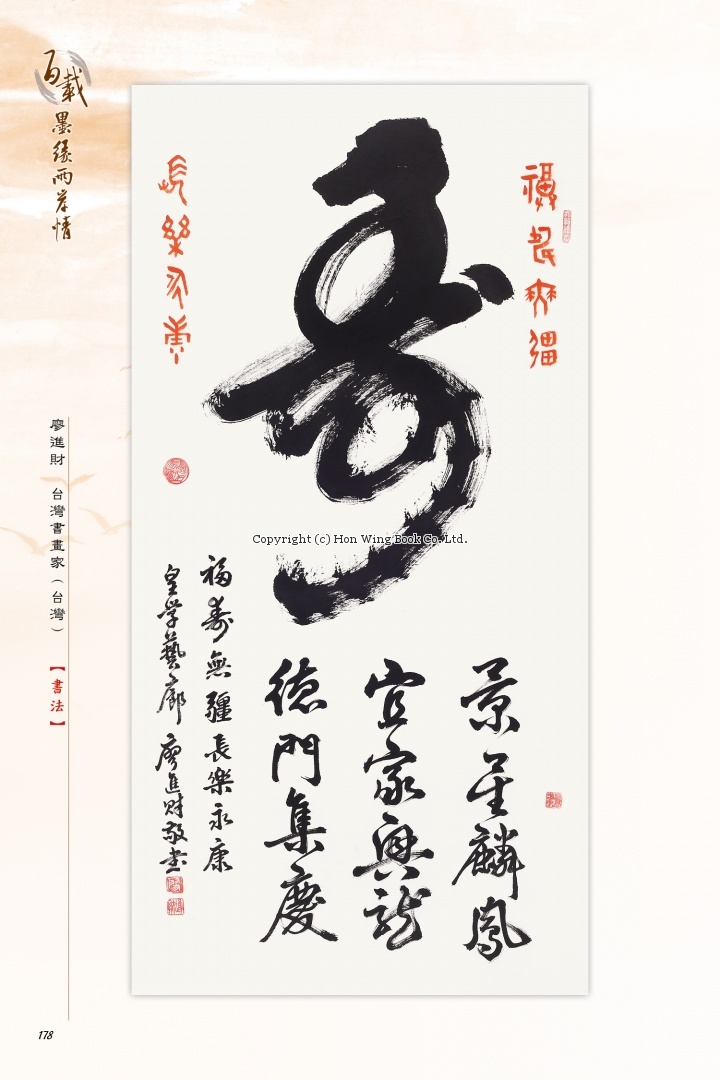 百載
墨緣兩岸情
廖進財 台灣書畫家（台灣）
【書法】
福壽無疆
長樂永康
壽
景星麟鳳
宜家興龍
德門集慶
福壽無疆長樂永康
皇学藝廊 廖進財敬書
Copyright (c) Hon Wing Book Co. Ltd.
178